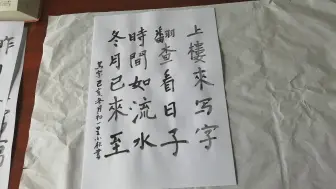 上樓來写字
翻查看日子
時間如流水
冬月已來至